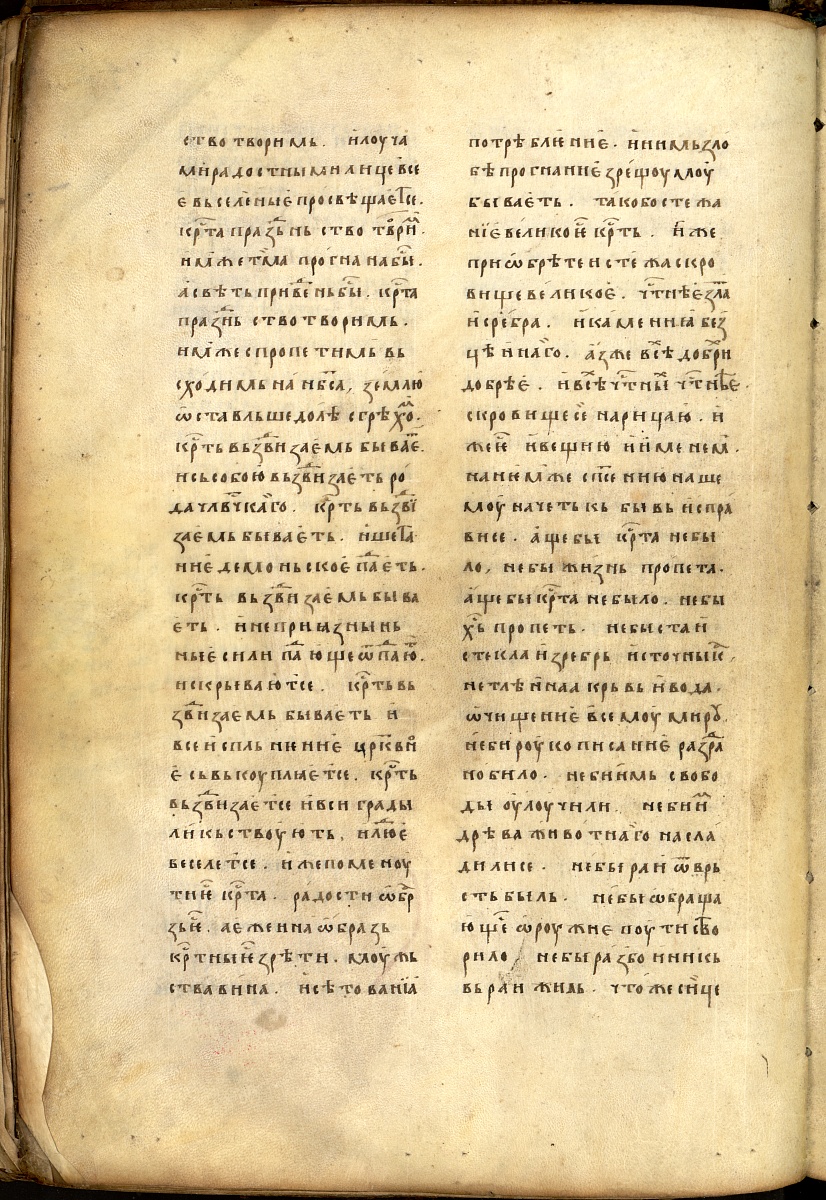 ство творимь. и лоуча
ми радостнымили це все
е вьселеные просвѣщаетсе.
крⷭта праздⷩьство творⷨи.
имьже тма прогнана быⷭ.
а свѣть привⷣень быⷭ. крⷭта
праздⷩьство творимь.
имьже спропетимь вь
сходимь на нбⷭса, землю
ѡставльше долѣ с грѣхⷨо.
крⷭть вьздⷡизаемь бываеⷮ.
и сь собою вьздⷡизаеть ро
да члвчⷭкаго. крⷭть вьздⷡи
заемь бываеть. и шета
ние демоньское падⷣаеть.
крⷭть вьздⷡизаемь быва
еть. и неприязньнь
ные сили падⷣающе ѿпадⷣаюⷮ.
и скреваютсе. крⷭть вь
здⷡизаемь бываеть и
все испльнение црⷦвно
е сьвькоупляетсе. крⷭть
вьздⷡизаетсе и вси грады
ликьствоують, и люⷣе
веселетсе. иже поменоу
тиѥ крⷭта. радости ѡбⷬ
зьѥ. а еже и на ѡбразь
крⷭтныѥ зрѣти. моужь
ства вина. и сѣтованїа
потрѣбление. и нимь зло
бѣ прогнание зрещоумоу
бываеть. тако бо стежа
нїе великоѥ крⷭть. иже
приѡбрѣте и стежа скро
вище великое. чⷭтнѣе зла
и сребра. и камениа без
цѣннаго. аз же всⷯѣ добри
добрѣе. и всⷯѣ чⷭтныⷯ чⷭтнѣе.
скровище се нарицаю. и
жеѥ и вещию и именемⷨ.
на нѥмже спⷭению наше
моу начетькь бывь исправ
висе. аще бы крⷭта не бы
ло, не бы жизнь пропета.
аще бы крⷭта не было. не бы
хⷭь пропеть. не быста и
стекла из ребрь источныⷦ,
нетлѣннаа крьвь и вода.
ѡчищение всемоу мироу.
не би роукописание раздⷬа
но било. не би имь свобо
ди оулоучили. не би иⷨ
дрѣва животнаго насла
дилисе. не бы раи ѿврь
сть быль. не бы ѡбраща
юще ѡроужие поути ство
рило, не бы разбоиникь
вь раи жиль. что же си це